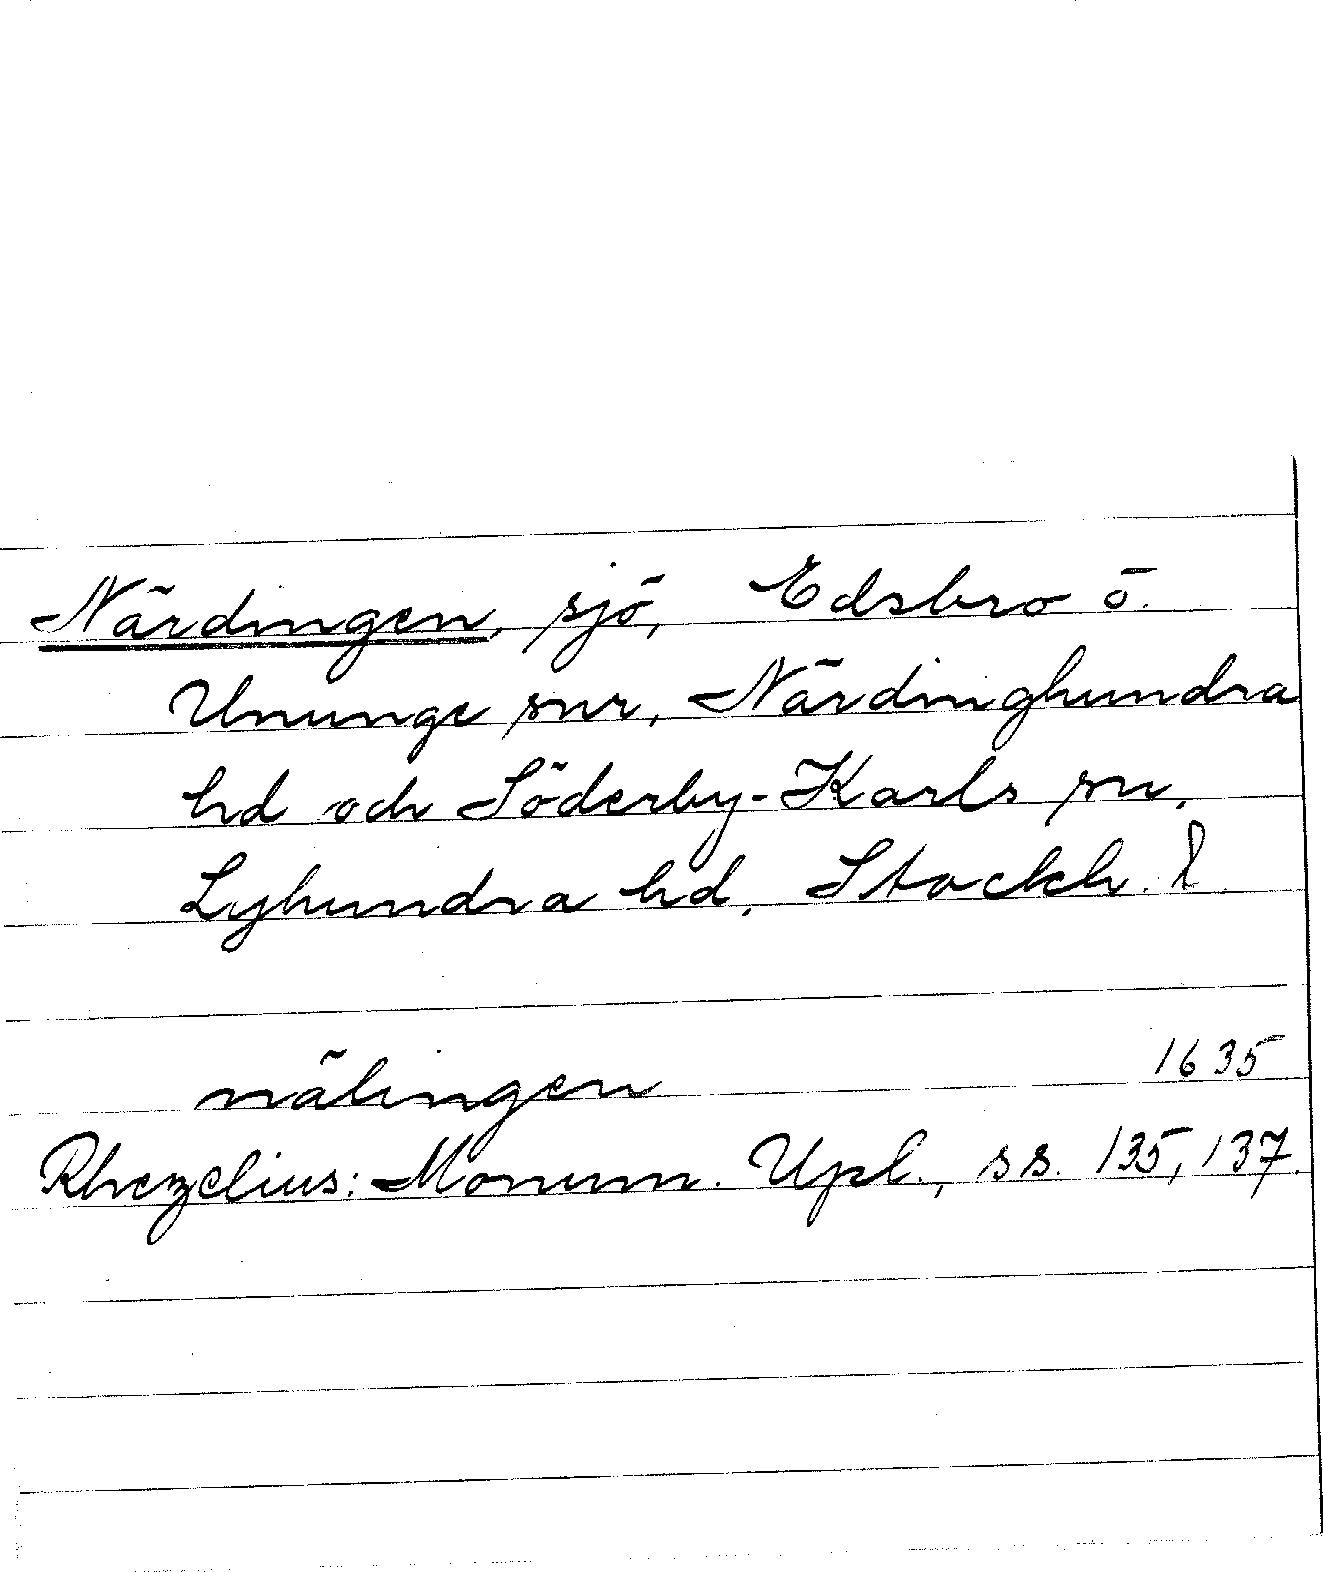 Närdingen, sjö, Edsbro o.
Ununge snr, Närdinghundra
hd och Söderby-Karls sn,
Lyhundra hd, Stockh. l.
nälingen 1635
Rhezelius: Monum. Upl., ss. 135, 137.